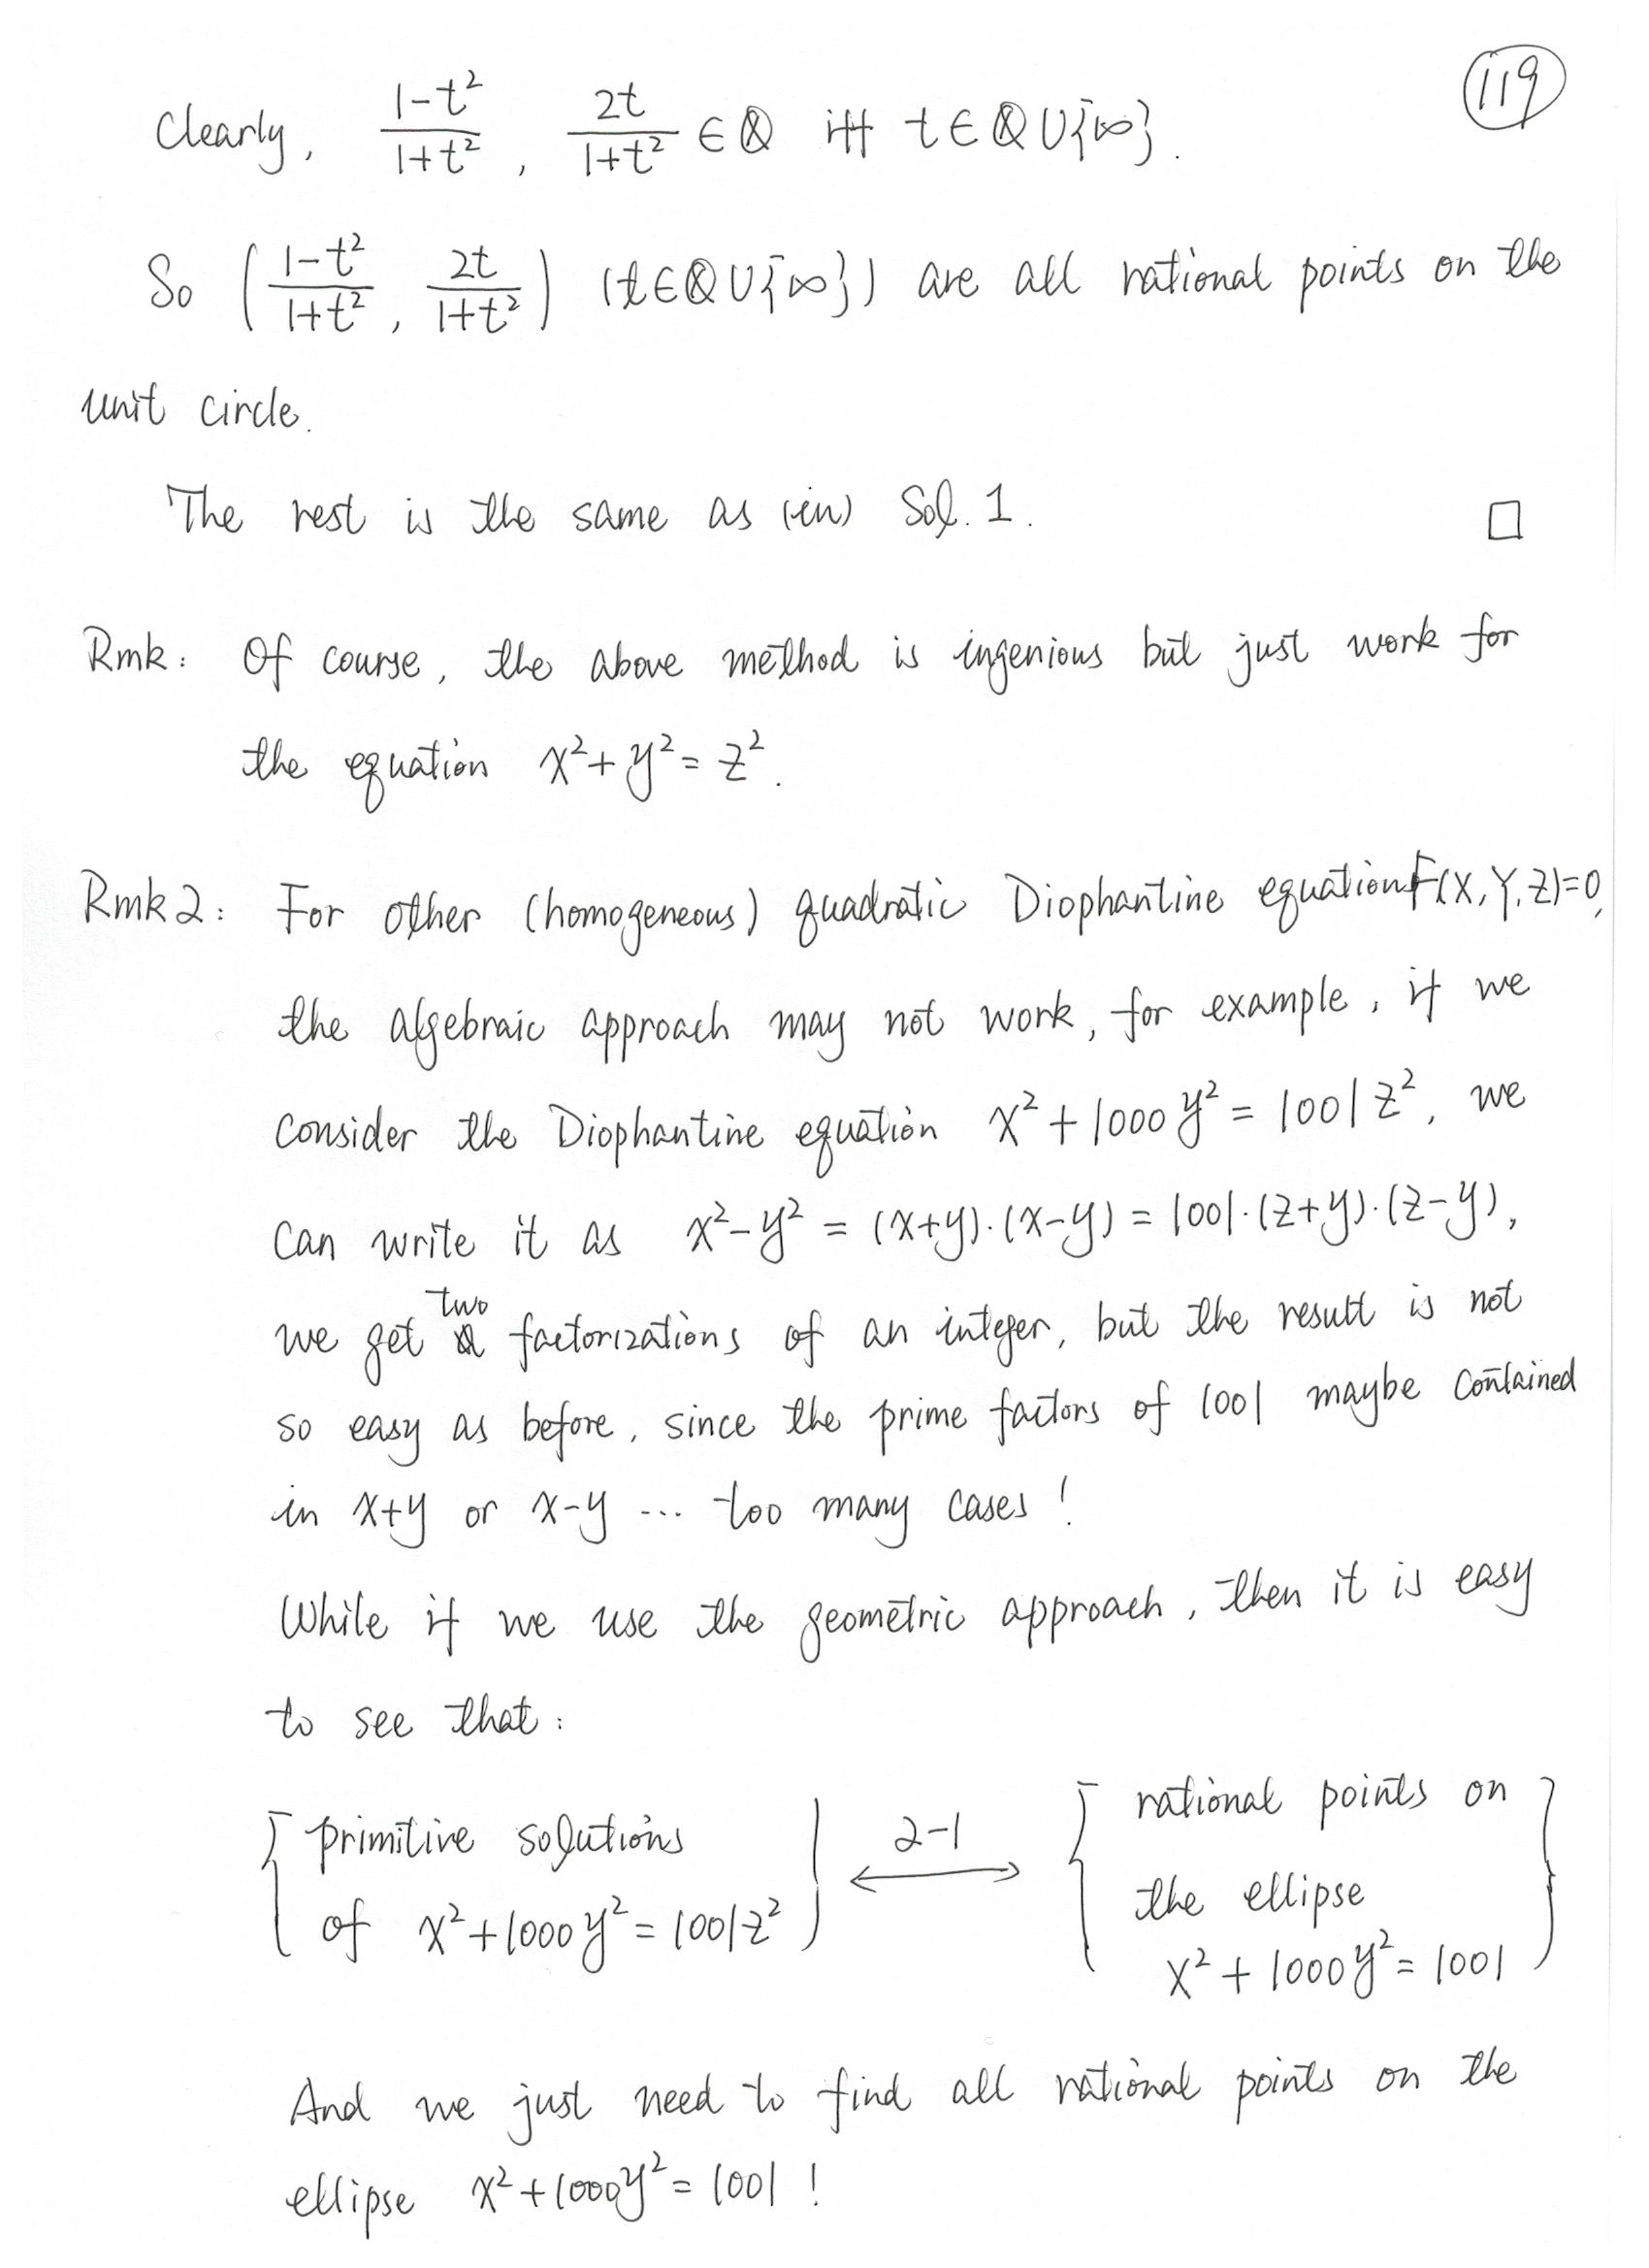 119
Clearly, (1-t²)/(1+t²), 2t/(1+t²) ∈ Q iff t ∈ Q ∪ {∞}.
So ((1-t²)/(1+t²), 2t/(1+t²)) (t ∈ Q ∪ {∞}) are all rational points on the
unit circle.
The rest is the same as (in) Sol. 1. □
Rmk: Of course, the above method is ingenious but just work for
the equation x²+y²=z².
Rmk2: For other (homogeneous) quadratic Diophantine equation F(X,Y,Z)=0,
the algebraic approach may not work, for example, if we
consider the Diophantine equation x²+1000y²=1001z², we
can write it as x²-y² = (x+y)·(x-y) = 1001·(z+y)·(z-y),
we get two factorizations of an integer, but the result is not
so easy as before, since the prime factors of 1001 maybe contained
in x+y or x-y ... too many cases!
While if we use the geometric approach, then it is easy
to see that:
{primitive solutions of x²+1000y²=1001z²} ⟷ 2-1 {rational points on the ellipse x²+1000y²=1001}
And we just need to find all rational points on the
ellipse x²+1000y²=1001 !